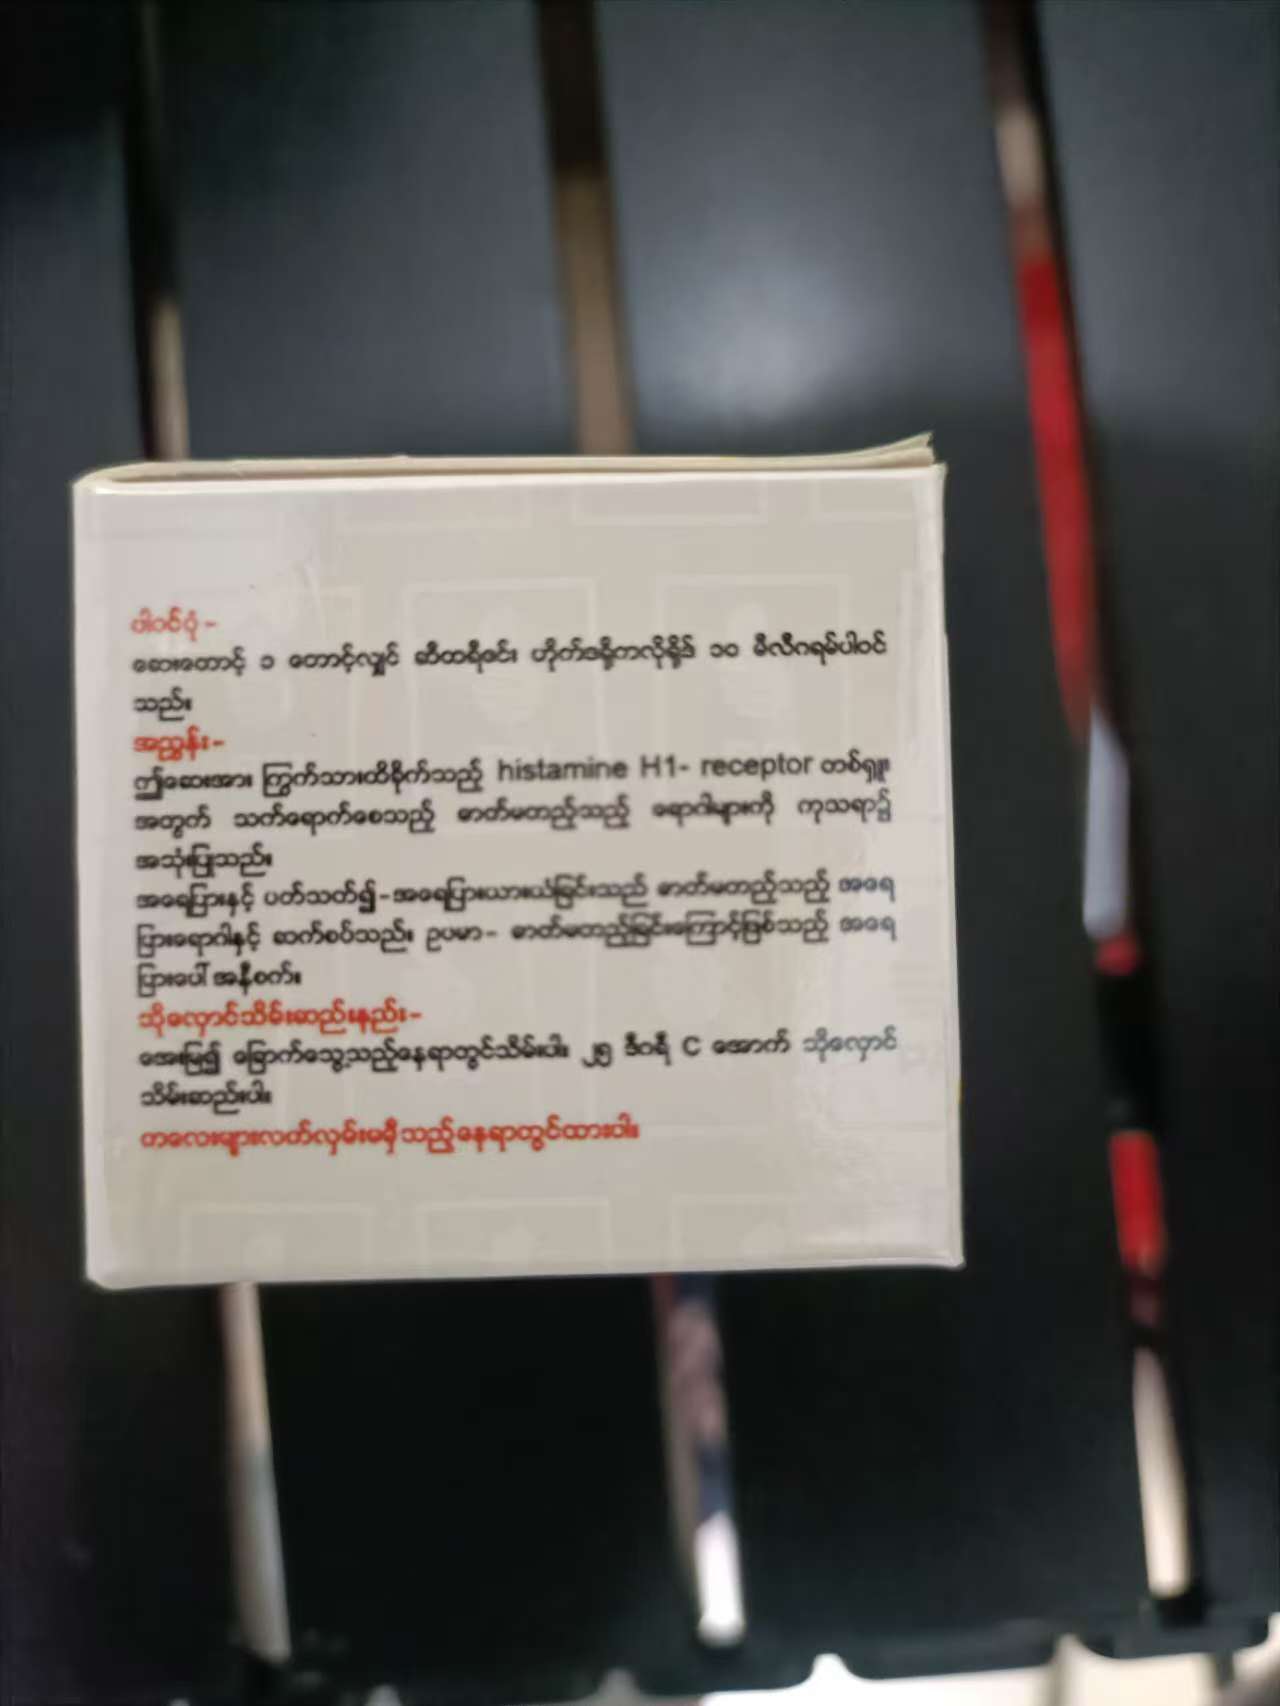 ပါဝင်ပုံ -
ဆေးတောင့် ၁ တောင့်လျှင် ဆီထရီဇင်း ဟိုက်ဒရိုကလိုရိုဒ် ၁၀ မီလီဂရမ်ပါဝင်
သည်။
အညွှန်း -
ဤဆေးအား ကြွက်သားထိခိုက်သည့် histamine H1- receptor တစ်ရှူး
အတွက် သက်ရောက်စေသည့် ဓာတ်မတည့်သည့် ရောဂါများကို ကုသရာ၌
အသုံးပြုသည်။
အရေပြားနှင့် ပတ်သတ်၍ - အရေပြားယားယံခြင်းသည် ဓာတ်မတည့်သည့် အရေ
ပြားရောဂါနှင့် ဆက်စပ်သည်။ ဥပမာ- ဓာတ်မတည့်ခြင်းကြောင့်ဖြစ်သည့် အရေ
ပြားပေါ် အနီစက်။
သိုလှောင်သိမ်းဆည်းနည်း -
အေးမြ၍ ခြောက်သွေ့သည့်နေရာတွင်သိမ်းပါ။ ၂၅ ဒီဂရီ C အောက် သိုလှောင်
သိမ်းဆည်းပါ။
ကလေးများလက်လှမ်းမမှီသည့်နေရာတွင်ထားပါ။